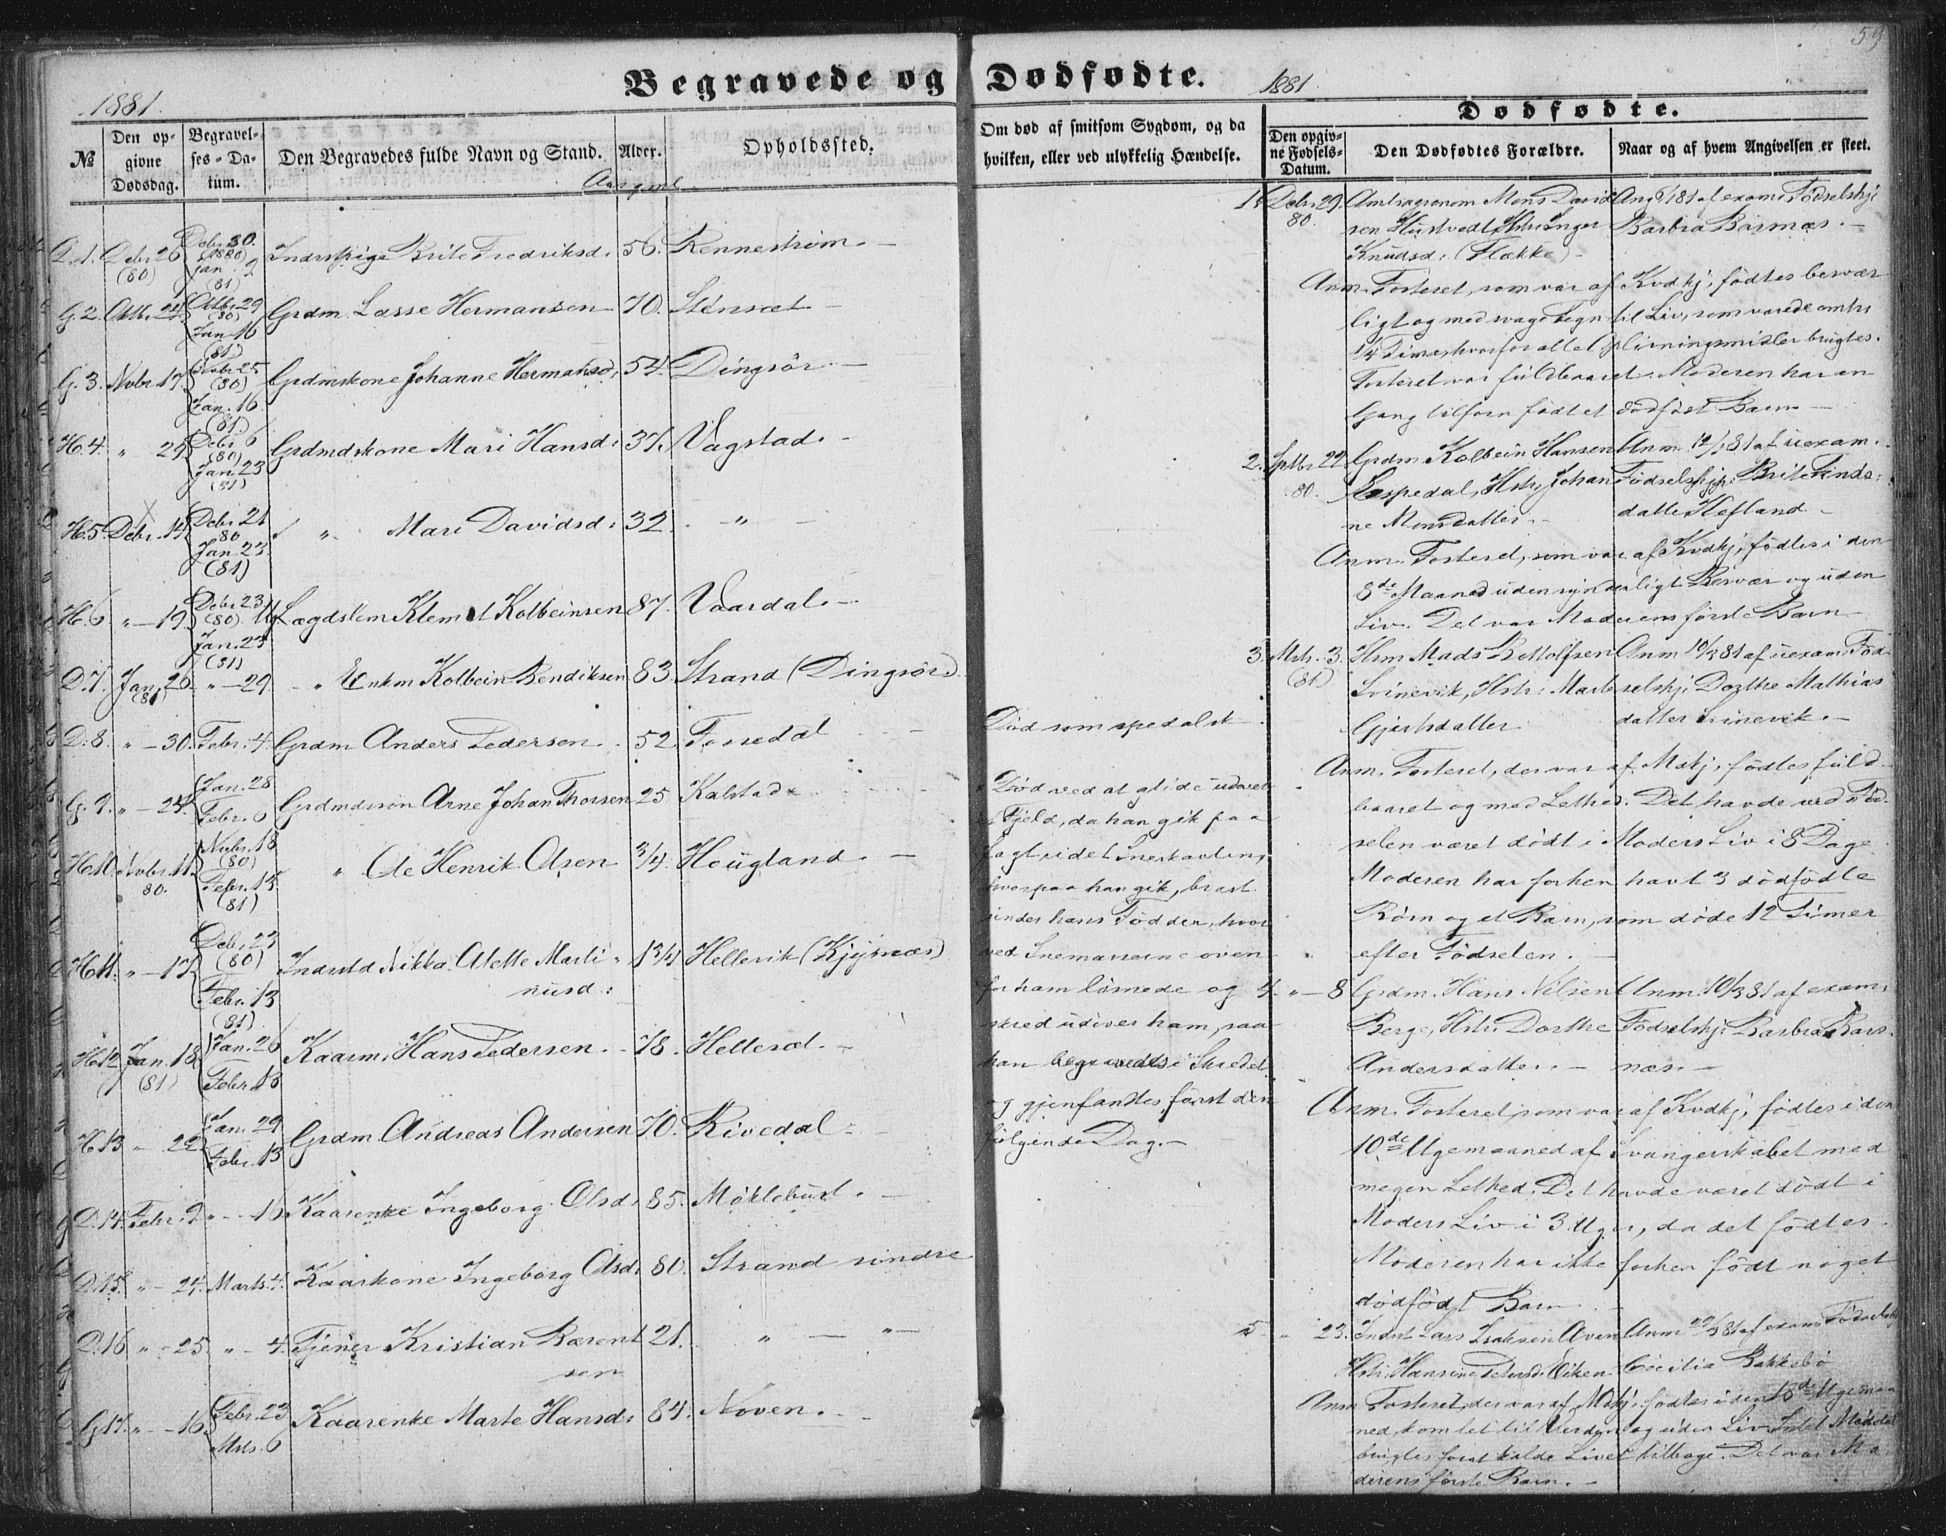 59
Begravede og Dødfødte.
1881.
1881
№
Den opgivne Dødsdag.
Begravelses-Datum.
Den Begravedes fulde Navn og Stand.
Alder.
Opholdssted.
Om død af smitsom Sygdom, og da hvilken, eller ved ulykkelig Hændelse.
Dødfødte.
Den opgivne Fødsels-Datum.
Den Dødfødtes Forældre.
Naar og af hvem Angivelsen er skeet.
Aar gml.
D. 1. Debr 26 (80) Debr 30. (1880) Jan. 2 (81) Indrstpige Brite Fredriksd: 56. Rennestrøm.
G. 2. Octb. 24. Octbr. 29 (80) Jan. 16 (81) Grdm. Lasse Hermansen 70. Stensæt
G. 3. Novbr. 17. (80) Jan. 16 (81) Grdmskone Johanne Hermansd: 54. Dingsör
H. 4. " 29. Debr 6 (80) Jan. 23 (81) Grdmdskone Mari Hansd: 37. Vagstad.
H. 5. Debr. 14. Debr 21 80 Jan. 23 (81) " Mari Davidsd: 32. "
H. 6 " 19. Debr. 23, (80) Jan. 23 (81) Lægdslem Klemet Kolbeinsen 87. Vaardal.
D. 7. Jan. 26 (81) " 29. " Enkm Kolbein Bendiksen 83. Strand (Dingsör)
D. 8. " 30. Febr. 4. Grdm Anders Pedersen. 52. Fossedal
G. 9. " 24. Jan. 28 Febr. 6 Grdmdssön Arne Johan Thorsen 25 Kalstad
H. 10. Novbr. 11. 80. Novbr. 18 (80) Febr. 13 (81) " Ole Henrik Olsen 3/4. Hougland.
H. 11. " 17. Debr. 23 (80) Febr. 13 (81) Nikka Olette Martinusd: 1 3/4 Hellevik
H. 12 Jan. 18. (81) Jan. 26 Febr. 13 Kaarm. Hans Pedersen. 78. Hellesæt.
H. 13 " 22 Jan. 29 Febr. 13 Grdm Andreas Andersen 70. Rivedal
D. 14. Febr. 9. " 16 Kaarenke Ingeborg Olsd: 85. Møklebust.
D. 15. " 24. Marts 4. Kaarkone Ingeborg Olsd: 80. Strand
D. 16 " 25. " 4. Tjener Kristian Bærentsen 21. " "
G. 17. " 16 Febr. 23 Mrts. 6 Kaarenke Marte Hansd: 84. Noven.
Død som spedalsk
Død ved at glide udover
et Fjeld, da han gik paa
Jagt, idet Sneskavlen,
hvorpaa han gik, brast
under hans Fødder, hvor-
ved Snemasserne oven-
for ham løsnede og
skred udover ham, saa
han begravedes i Skredet
og gjenfandtes først den
følgende Dag.
1. Debr. 29. 80. Amtsagronom Mons Davidsen Hustvedt, Hstr: Inger
Knudsd: (Flekke)
Barbra Barsnæs.
Anm. Fosteret, som var af Kvdkj: fødtes besvær-
ligt og med svage Tegn til Liv, som varede omtr.
1/4 Time, hvorfor alle Oplivningsmidler brugtes.
Fosteret var fuldbaaret. Moderen har en
Gang tilforn født et dødfødt Barn
2. Sptbr. 22. 80. Grdm. Kolbein Hansen
Espedal, Hstr: Johanne Monsdatter.
Anm. 12/1 81 af uexam.
Fødselshjp: Brite Findsdatter Hefland
Anm. Fosteret, som var af Kvdkj: fødtes i den
8de Maaned uden synderligt Besvær og uden
Liv. Det var Moderens første Barn
3. Mrts. 3. (81) Hsm. Mads
Svinevik, Hstr: Marte
Gjertsdatter
Anm 10/3 81 af uexam. Fødselshj: Dorthe Mathiasdatter Svinevik.
Anm. Fosteret, der var af Mkj: fødtes fuld-
baaret og med Lethed. Det havde ved Fød-
selen været dødt i Moders Liv i 8 Dage
Moderen har forhen havt 3 dødfødte
Børn og et Barn, som døde 12 Timer
efter Fødselen.
4. " 8 Grdm. Hans Nilsen
Berge, Hstr: Dorthe
Andersdatter.
Anm. 10/3 81 af exam.
Fødselshj: Barbra Barsnæs.
Anm. Fosteret, som var af Kvdkj: fødtes i den
10de Ugemaaned af Svangerskabet med
megen Lethed. Det havde været dødt i
Moders Liv i 3 Uger, da det fødtes.
Moderen har ikke forhen født noget
dødfødt Barn.
5 " 23. Indrst Lars Isaksen
Hstr: Hansine
Anm 29/3 81 af exam. Fødselshj:
Cecilia Bakkebø
Anm Fosteret, der var af Mkj: fødtes i den Ugemaa-
ned kom let til Verden og uden Liv.
brugtes forat kalde Livet tilbage. Det var Mo-
derens første Barn.